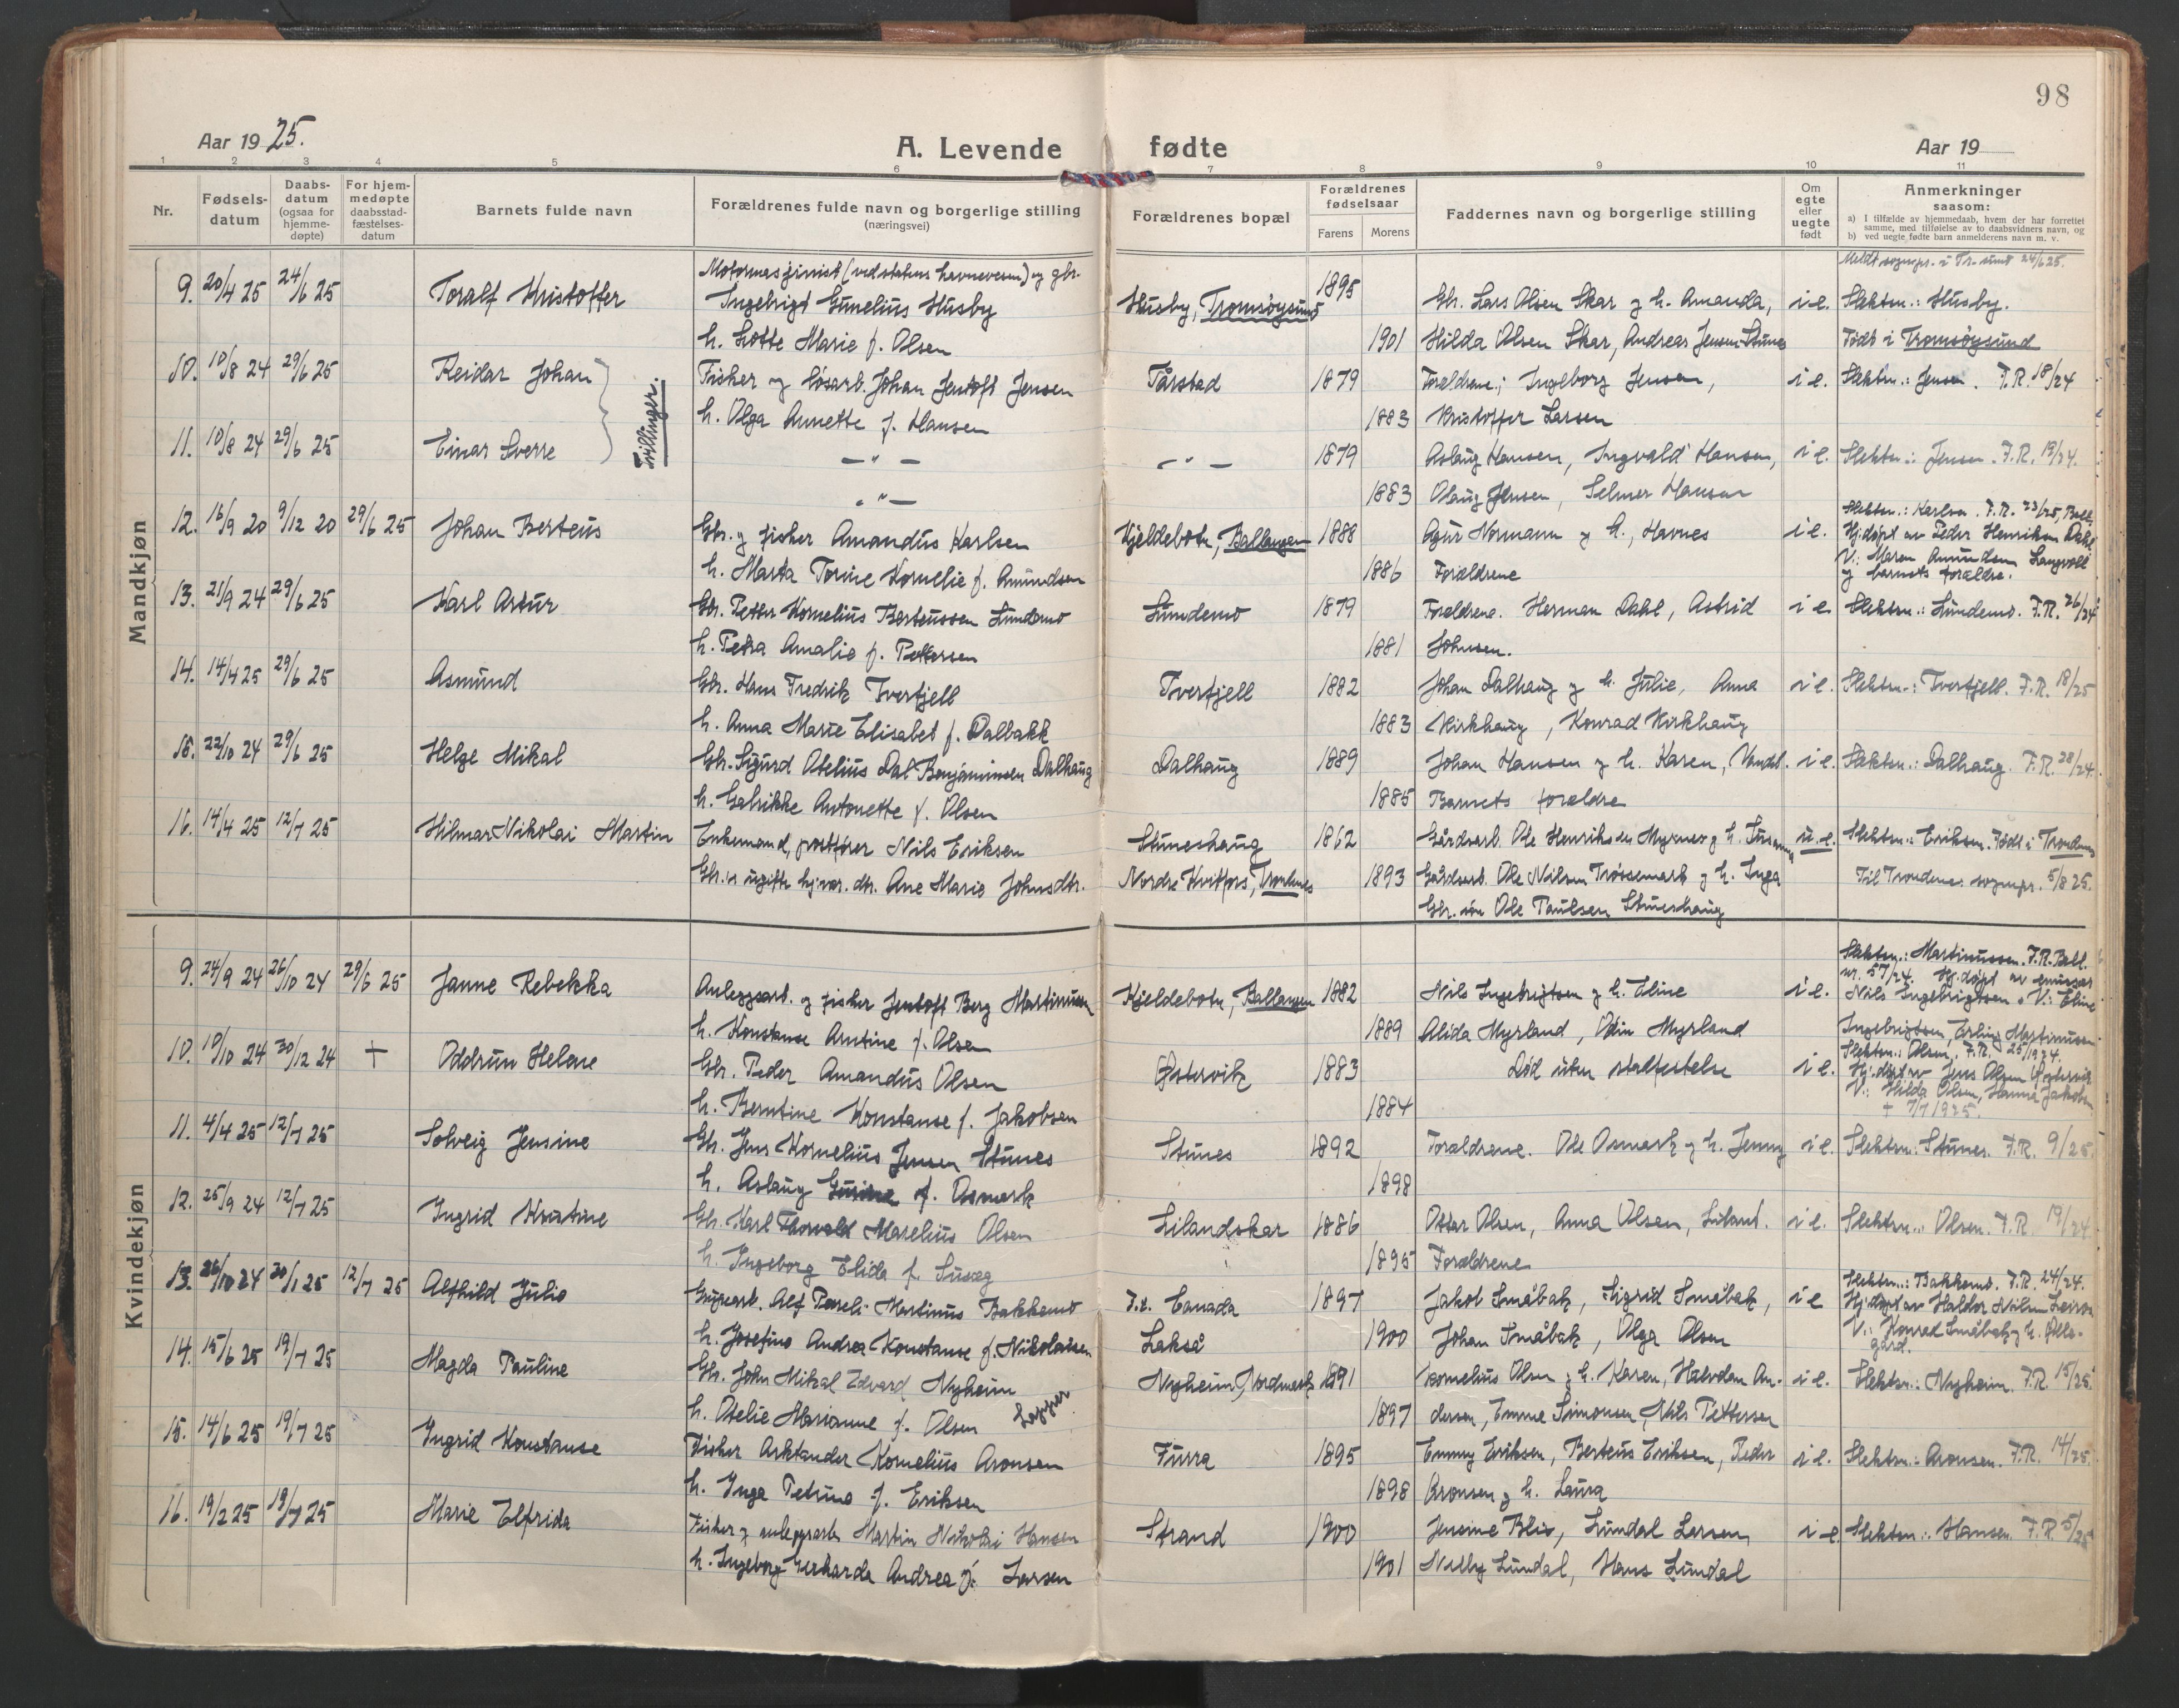 98
Aar 1925.
A. Levende fødte
Aar 19
1 2 3 4 5 6 7 8 9 10 11
Nr.
Fødsels-datum
Daabs-datum (ogsaa for hjemme-døpte)
For hjem-medøpte daabsstad-fæstelses-datum
Barnets fulde navn
Forældrenes fulde navn og borgerlige stilling
(næringsvei)
Forældrenes bopæl
Forældrenes fødselsaar
Farens Morens
Faddernes navn og borgerlige stilling
Om egte eller uegte født
Anmerkninger
saasom:
a) I tilfælde av hjemmedaab, hvem der har forrettet samme, med tilføielse av to daabsvidners navn, og
b) ved uegte fødte barn anmelderens navn m. v.
Mandkjøn
Motormasjinist (ved statens havnevesen) og gbr. Meldt sognepr. i Tr.sund 24/6 25.
9. 20/4 25 24/6 25 Toralf Kristoffer Ingebrigt Gunelius Husby Husby, Tromsøysund 1895 Gbr. Lars Olsen Skar og h. Amanda, i e. Slektsn.: Husby.
h. Lotte Marie f. Olsen 1901 Hilda Olsen Skar, Andreas Jensen Stunes Født i Tromsøysund
10. 10/8 24 29/6 25 Reidar Johan Fisker og løsarb. Johan Jentoft Jensen Tårstad 1879 Forældrene; Ingeborg Jensen, i e. Slektsn.: Jensen. F.R. 18/24
Tvillinger.
h. Olga Annette f. Hansen 1883 Kristoffer Larsen
11. 10/8 24 29/6 25 Einar Sverre — " — — " — 1879 Aslaug Hansen, Ingvald Hansen, i e. Slektsn.: Jensen. F.R. 19/24.
— " — 1883 Olaug Jensen, Selmer Hansen
12. 16/9 20 9/12 20 29/6 25 Johan Berteus Gbr. og fisker Amandus Karlsen Kjeldebotn, Ballangen 1888 Agur Normann og h., Havnes i e. Slektsn.: Karlsen. F.R. 23/25, Ball.
Hj.døpt av Peder Henriksen Dahl
h. Marta Torine Kornelie f. Amundsen 1886 Forældrene V.: Maren Amundsen Langvoll
og barnets forældre.
13. 21/9 24 29/6 25 Karl Artur Gbr. Petter Kornelius Berteussen Lundemo Lundemo 1879 Forældrene. Herman Dahl, Astrid i e. Slektsn.: Lundemo. F.R. 26/24
h. Petra Amalie f. Pettersen 1881 Johnsen.
14. 14/4 25 29/6 25 Asmund Gbr. Hans Fredrik Tverfjell Tverfjell 1882 Johan Dalhaug og h. Julie, Anna i e. Slektsn.: Tverfjell. F.R. 18/25
h. Anna Marie Elisabet f. Dalbakk 1883 Kirkhaug, Konrad Kirkhaug
15. 22/10 24 29/6 25 Helge Mikal Gbr. Sigurd Otelius Dal Benjaminsen Dalhaug Dalhaug 1889 Johan Hansen og h. Karen, i e. Slektsn.: Dalhaug. F.R. 28/24.
h. Galrikke Antonette f. Olsen 1885 Barnets forældre
16. 14/4 25 12/7 25 Hilmar Nikolai Martin Enkemand, postfører Nils Eriksen Stuneshaug 1862 Gårdsarb. Ole Henriksen Myrnes og h. Susanna u.e. Slektsn.: Eriksen. Født i Trondenes
Gbr.s ugifte hj.vær. dtr. Ane Marie Johnsdtr. Nordre Kvitfors, Trondenes 1893 Gårdsarb. Ole Nilsen Trøssemark og h. Inga Til Trondenes sognepr. 5/8 25.
Gbr. søn Ole Paulsen Stuneshaug
Kvindekjøn
9. 24/9 24 26/10 24 29/6 25 Janne Rebekka Anleggsarb. og fisker Jentoft Berg Martinussen Kjeldebotn, Ballangen 1882 Nils Ingebrigtsen og h. Eline i e. Slektsn.: Martinussen. F.R. Ball.
nr. 57/24. Hj.døpt av emissær
Nils Ingebrigtsen. V.: Eline
h. Konstanse Arntine f. Olsen 1889 Alida Myrland, Odin Myrland Ingebrigtsen, Erling Martinussen
10. 19/10 24 30/12 24 † Oddrun Helene Gbr. Peder Amandus Olsen Østervik 1883 Død uten stadfestelse i e. Slektsn.: Olsen. F.R. 25/1924.
Hj.døpt av Jens Olsen Østervik
h. Berntine Konstanse f. Jakobsen 1884 V.: Hilda Olsen, Hanna Jakobsen
† 7/7 1925.
11. 4/4 25 12/7 25 Solveig Jensine Gbr. Jens Kornelius Jensen Stunes Stunes 1892 Forældrene. Ole Osmark og h. Jenny i e. Slektsn.: Stunes. F.R. 9/25.
h. Aslaug f. Osmark 1898
12. 25/9 24 12/7 25 Ingrid Kristine Gbr. Karl Thorvald Marelius Olsen Lilandskar 1886 Ottar Olsen, Anna Olsen, Liland. i e. Slektsn.: Olsen. F.R. 19/24
h. Ingeborg Elida f. 1895 Forældrene
13. 26/10 24 30/1 25 12/7 25 Alfhild Julie Grubearb. Alf Pareli Martinus Bakkemo F.t. Canada 1897 Jakob Småbak, Sigrid Småbak, i e Slektsn.: Bakkemo. F.R. 24/24.
Hj.døpt av Haldor Nilsen Leiros
h. Josefine Andrea Konstanse f. Nikolaisen Lakså 1900 Johan Småbak, Olga Olsen V.: Konrad Småbak og h.
gård.
14. 15/6 25 19/7 25 Magda Pauline Gbr. John Mikal Edvard Nyheim Nyheim, Nordmark 1891 Kornelius Olsen og h. Karen, Halvdan An- i e. Slektsn.: Nyheim. F.R. 15/25.
h. Otelie Marianne f. Olsen Lapper 1897 dersen, Emma Simonsen, Nils Pettersen
15. 14/6 25 19/7 25 Ingrid Konstanse Fisker Arktander Kornelius Aronsen Furra 1895 Emmy Eriksen, Berteus Eriksen, Peder i e. Slektsn.: Aronsen. F.R. 14/25.
h. Inga Petrine f. Eriksen 1898 Aronsen og h. Laura
16. 19/2 25 19/7 25 Marie Elfrida Fisker og anleggsarb. Martin Nikolai Hansen Strand 1900 Jensine Lundal Larsen i e. Slektsn.: Hansen. F.R. 5/25
h. Ingeborg Gerharda Andrea f. Larsen 1901 Nelly Lundal, Hans Lundal